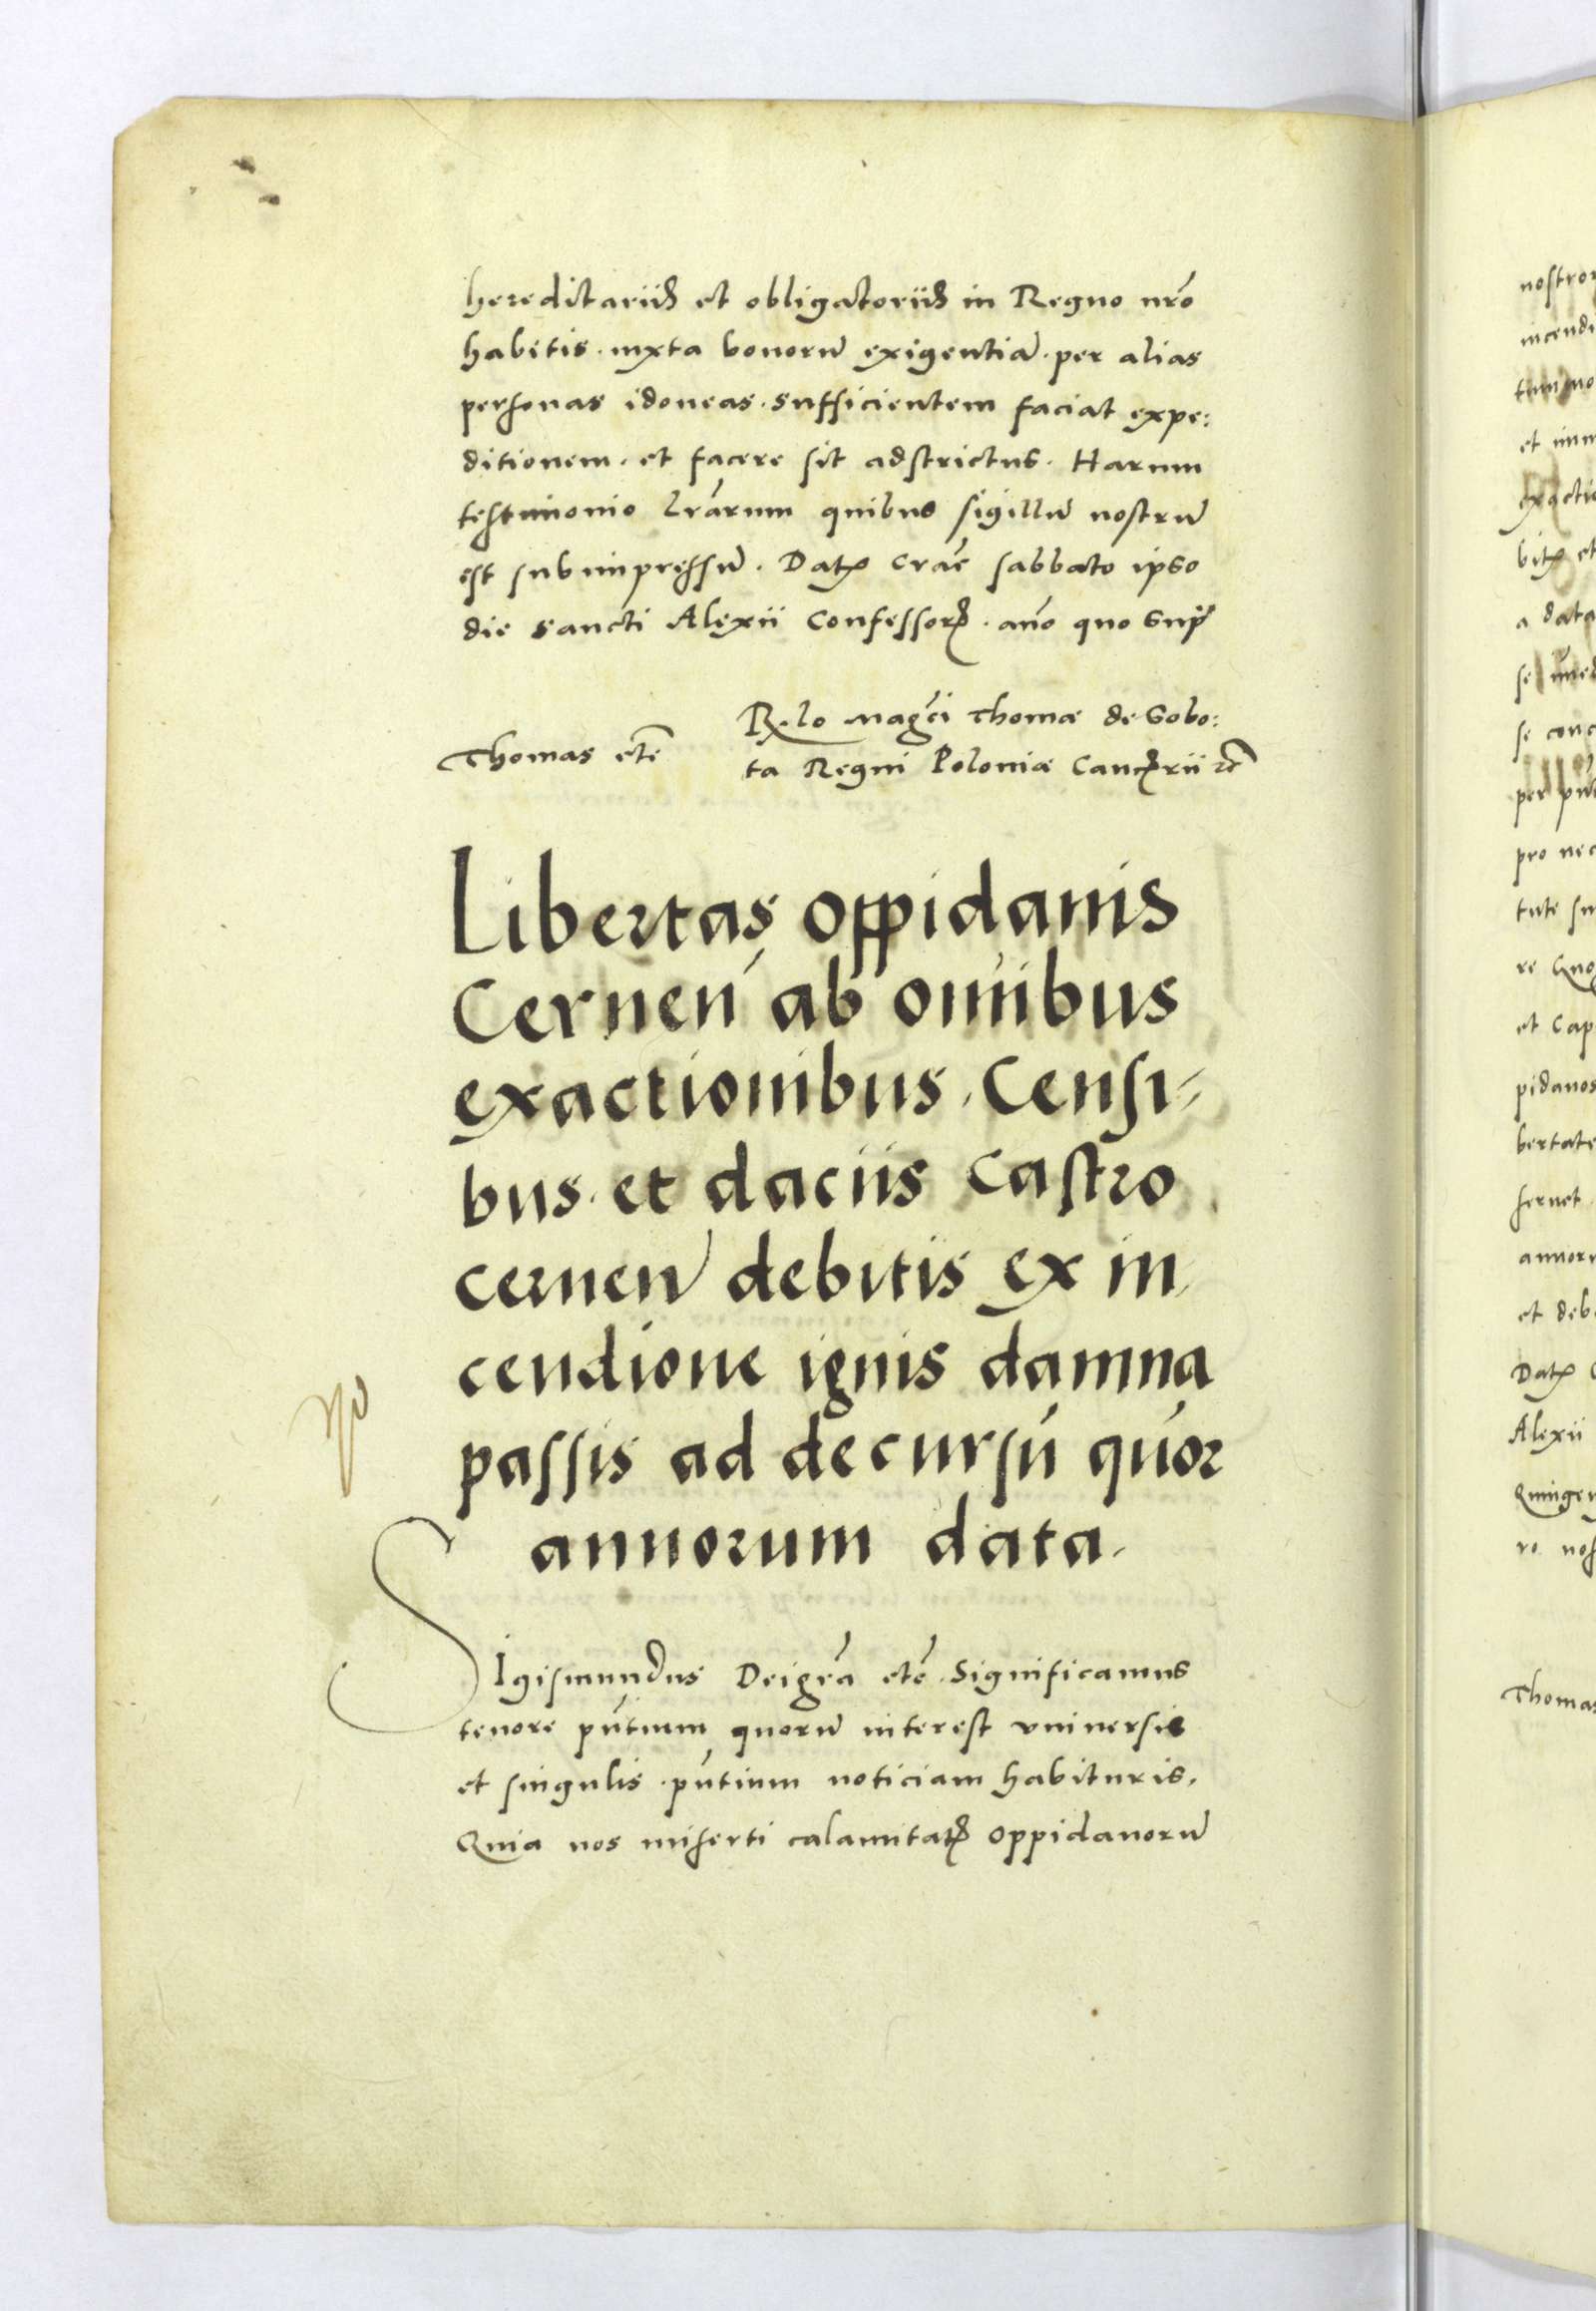 hereditariis et obligatoriis in Regno nro
habitis. iuxta bonorū exigentiā. per alias
personas idoneas. sufficientem faciat expe:
ditionem. et facere sit adstrictus. Harum
testimonio lrarum quibus sigillū nostrū
est subimpressū. Datꝭ Crac sabbato ipso
die sancti Alexii Confessorꝭ. āno quo sup
Rlo Magci Thomæ de Sobo:
Thomas etc̄ ta Regni Poloniæ Cancꝭrii &c
Libertas oppidanis
Cerneń ab oīnibus
exactionibus. Censi-
bus. et daciis Castro
cerneń debitis ex in-
cendione ignis damna
passis ad decursū quor
annorum data.
SIgismundus Deigrā etc̄. Significamus
tenore pntium quorū interest vniversis
et singulis. pntium noticiam habituris.
Quia nos miserti calamitatꝭ oppidanorū
nostror
incendi
et imm
exactio
bitꝭ et
a data
se conc
pro nec
tute su
re Quo
et Cap
pidanos
bertate
servet
annoru
et deb
Datꝭ C
Alexii
Quingen
ro nos
Thomas